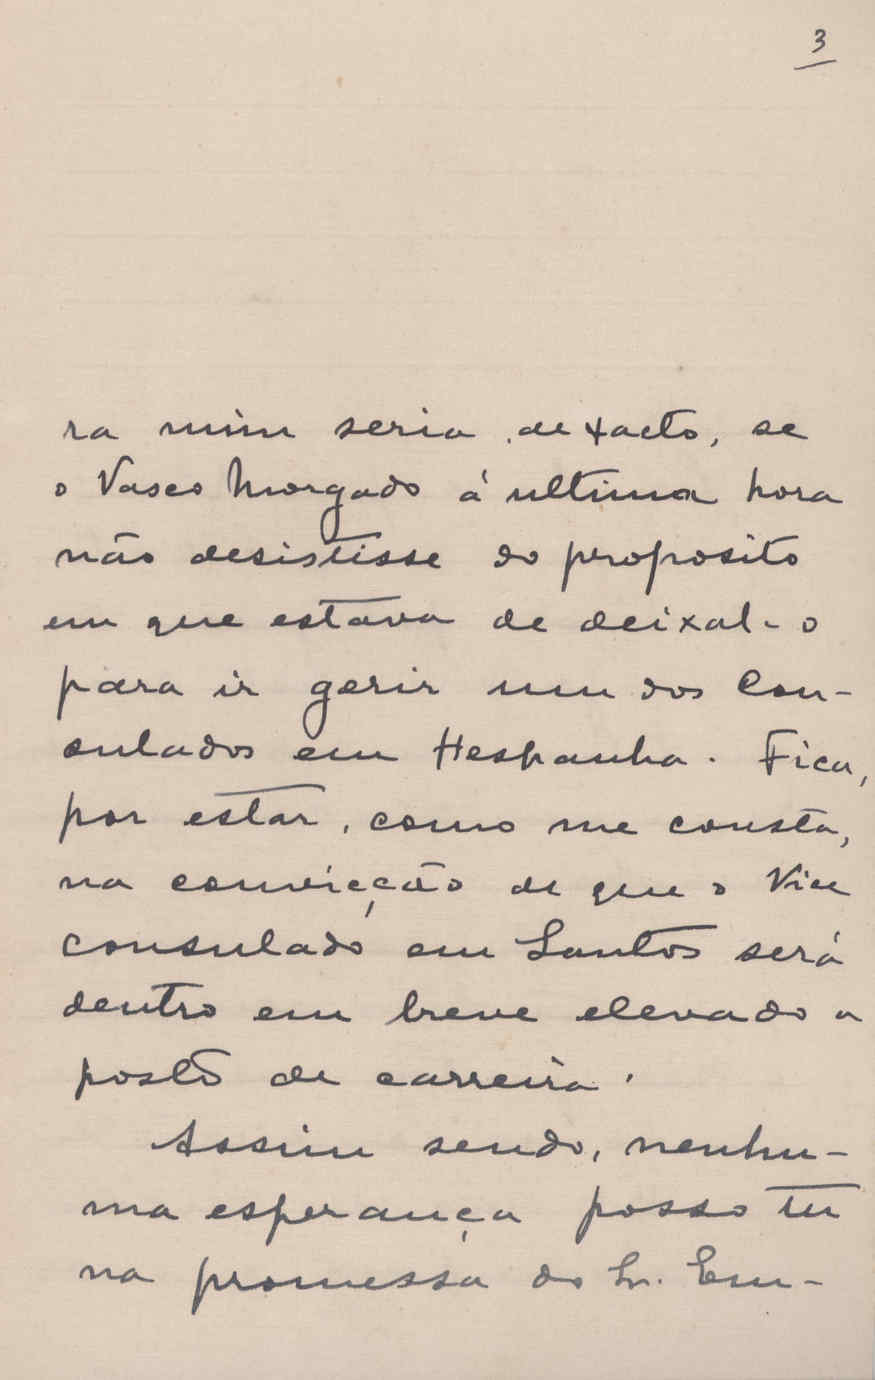 3
ra mim seria de facto, se
o Vasco Morgado á ultima hora
não desistisse do proposito
em que estava de deixal-o
para ir gerir um dos Con-
sulados em Hespanha. Fica,
por estar, como me consta,
na convicção de que o Vice
consulado em Santos será
dentro em breve elevado a
posto de carreira.
Assim sendo, nenhu-
ma esperança posso ter
na promessa do Sr. Em-